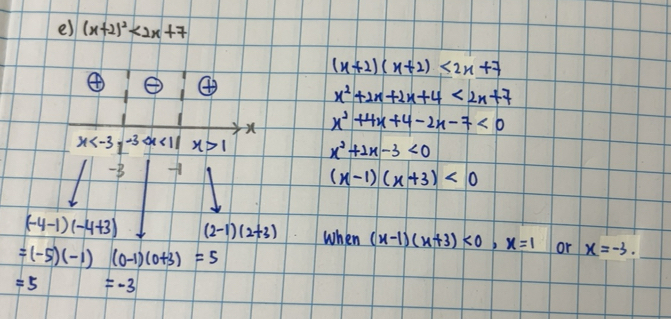 e) (x+2)² < 2x+7
⊕ ⊖ ⊕
x
x<-3 -3<x<1 x>1
-3 -1
(-4-1)(-4+3)
=(-5)(-1)
=5
(0-1)(0+3)
=-3
(2-1)(2+3)
=5
(x+2)(x+2) <2x+7
x²+2x+2x+4 <2x+7
x²+4x+4-2x-7<0
x²+2x-3<0
(x-1)(x+3) < 0
When (x-1)(x+3)<0, x=1 or x=-3.